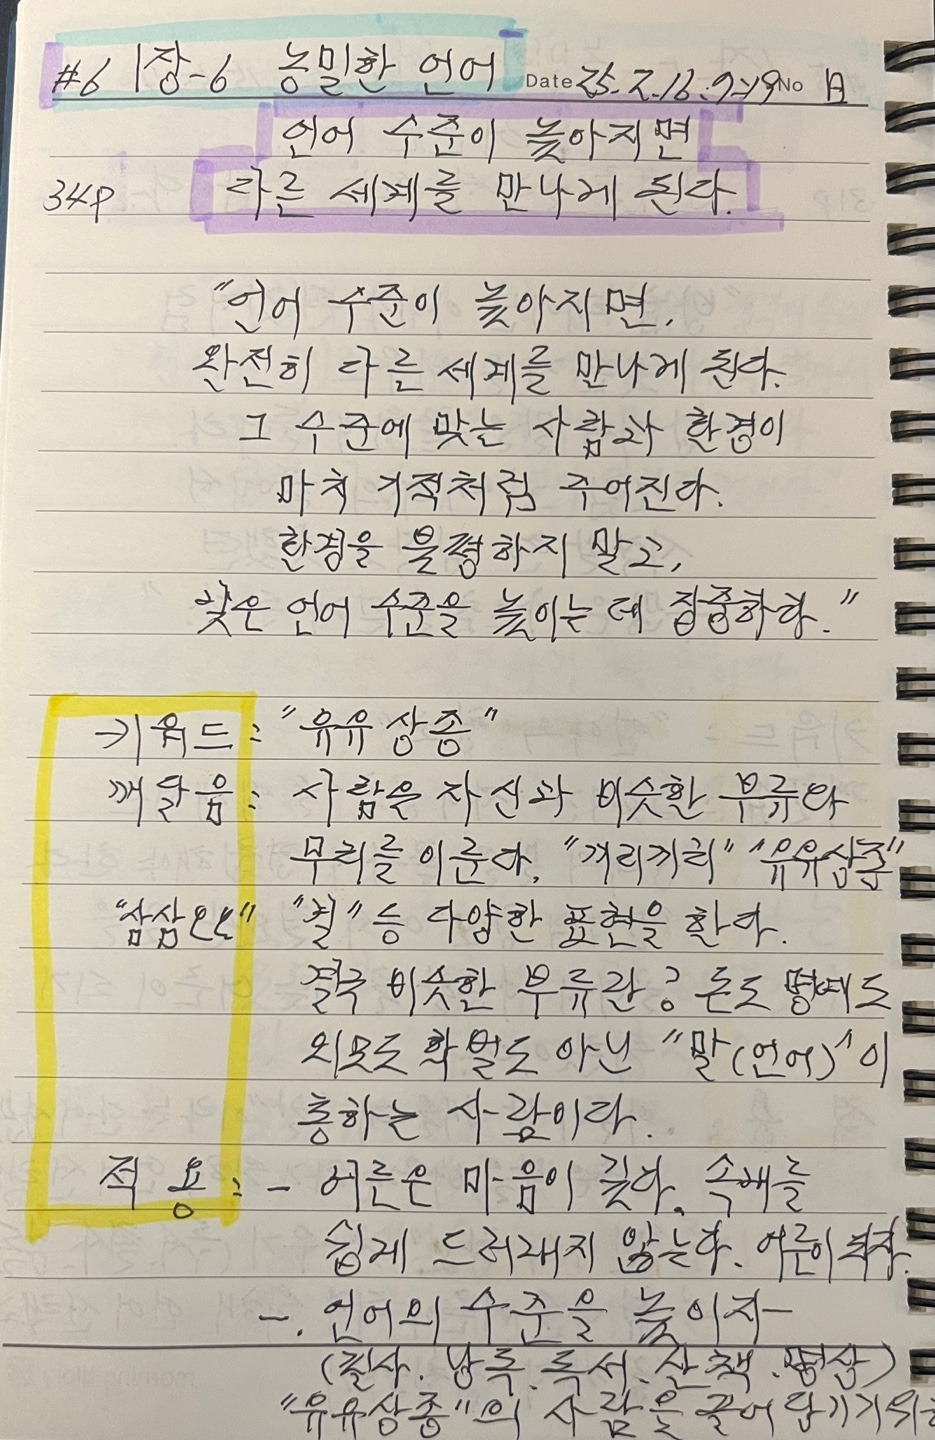 #6 1장-6 농밀한 언어 Date 25.2.16.9:19 No 日
언어 수준이 높아지면
34P 다른 세계를 만나게 된다.
"언어 수준이 높아지면,
완전히 다른 세계를 만나게 된다.
그 수준에 맞는 사람과 환경이
마치 기적처럼 주어진다.
환경을 불평하지 말고,
낮은 언어 수준을 높이는 데 집중하라."
키워드 : "유유상종"
깨달음 : 사람은 자신과 비슷한 부류와
무리를 이룬다. "끼리끼리" "유유상종"
"삼삼오오" "결" 등 다양한 표현을 한다.
결국 비슷한 부류란? 돈도 명예도
외모도 학벌도 아닌 "말(언어)"이
통하는 사람이다.
적용 : - 어른은 마음이 깊다. 속내를
쉽게 드러내지 않는다. 어른이 되자.
-. 언어의 수준을 높이자-
(필사. 낭독. 독서. 산책. 명상)
"유유상종"의 사람을 끌어 당기기 위해